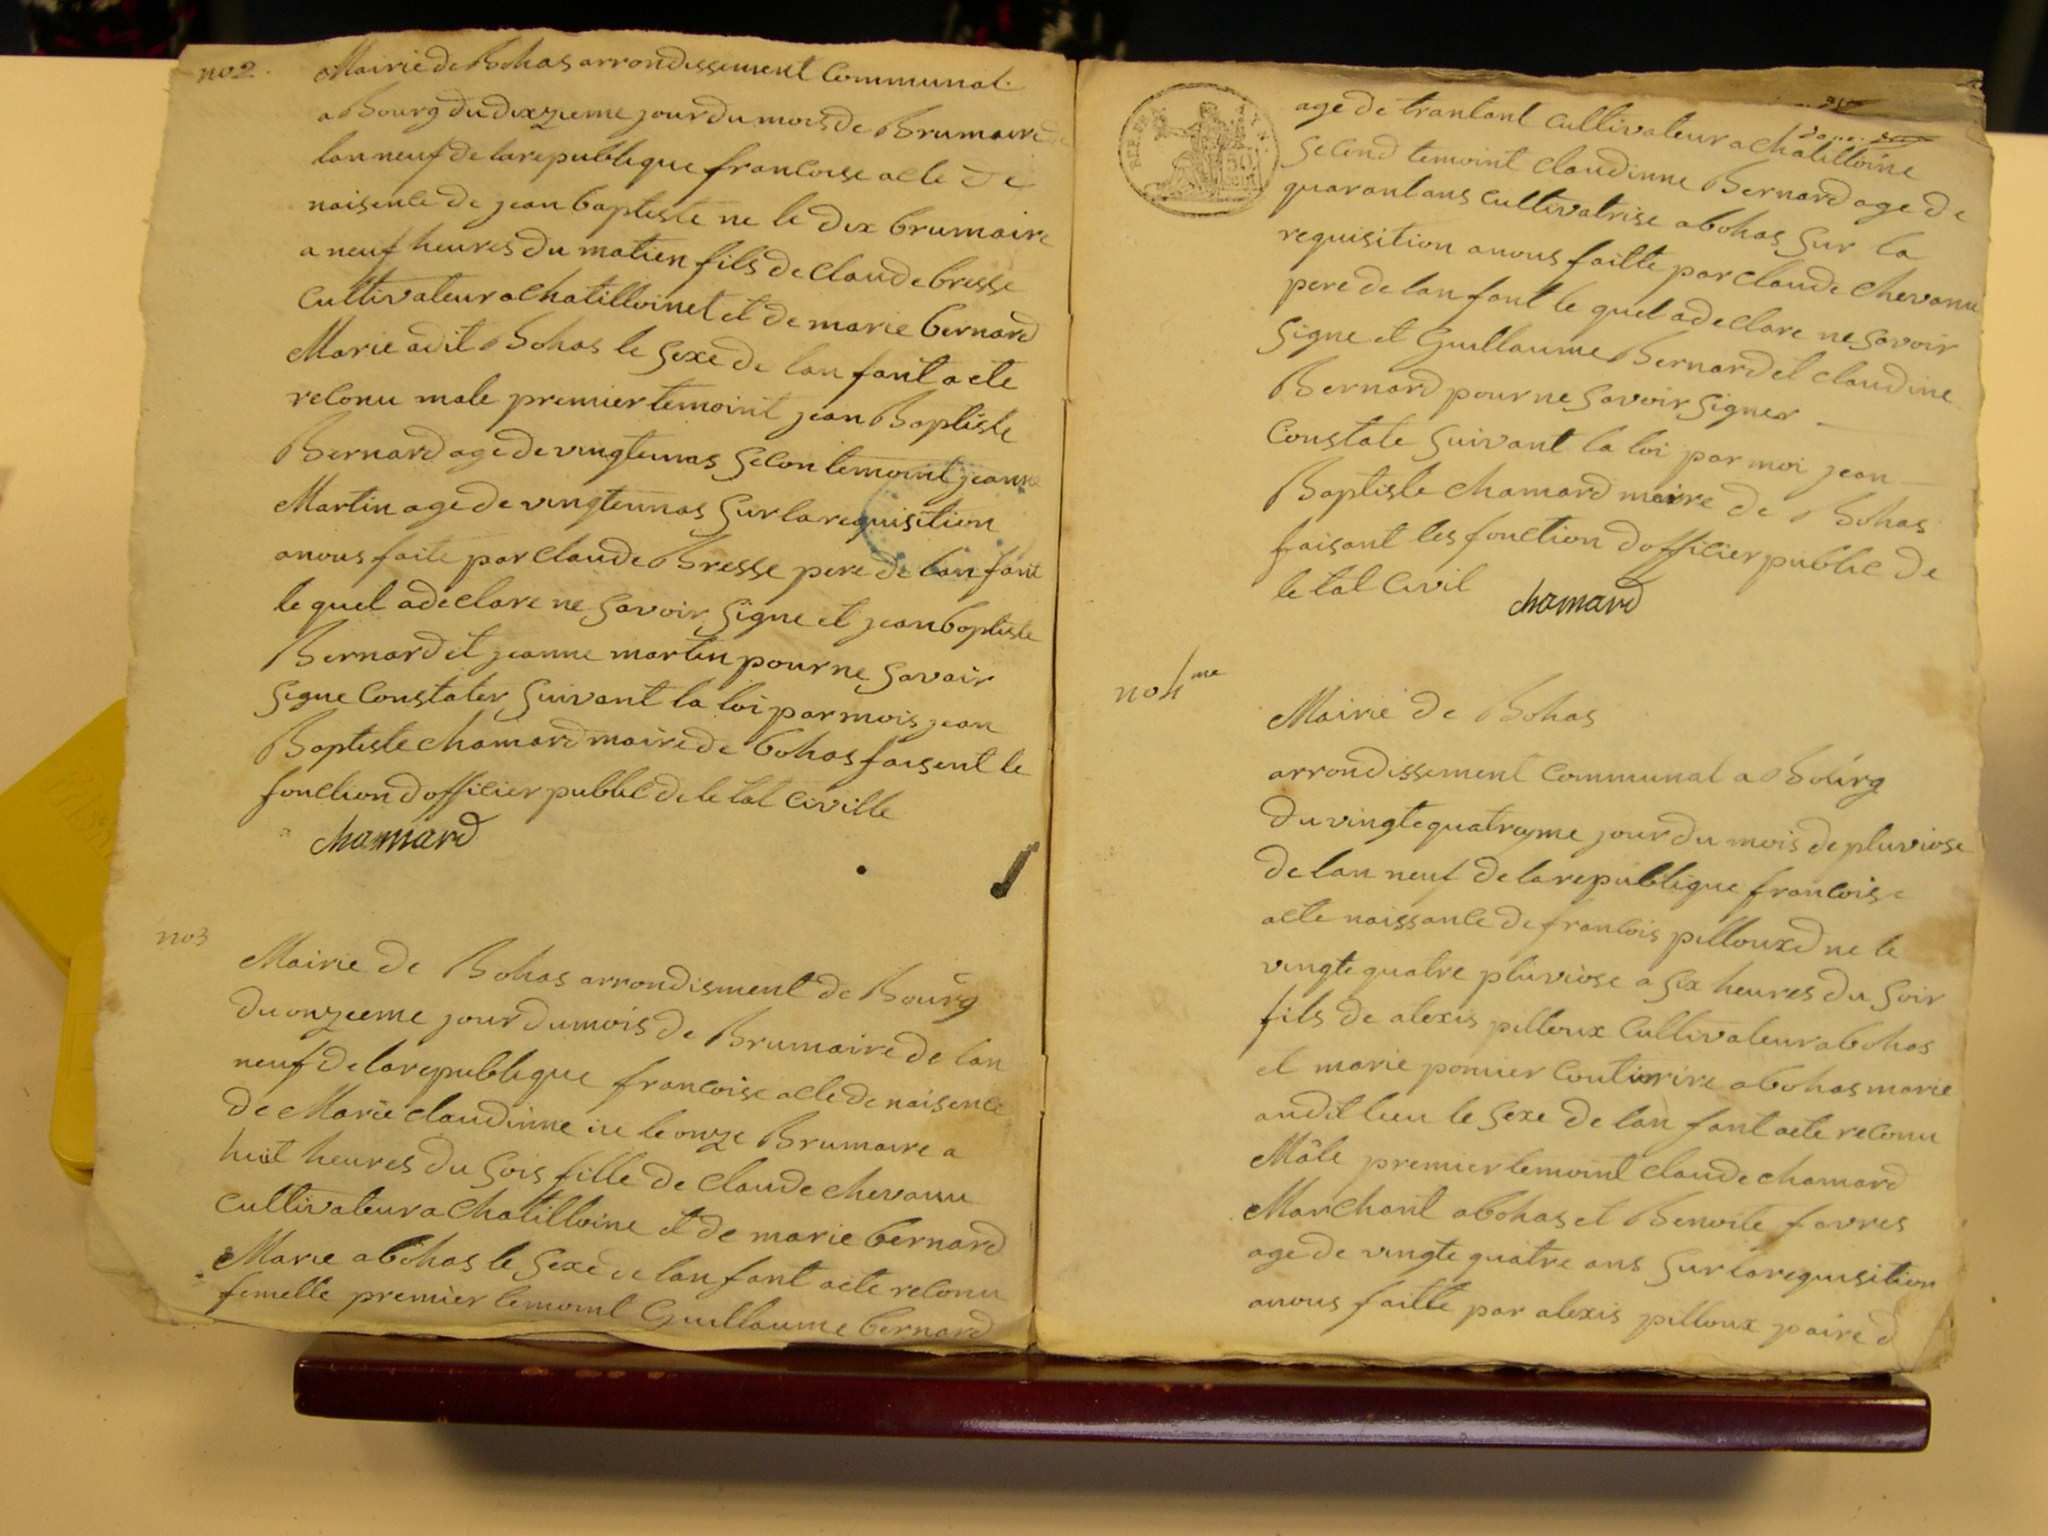 no2.
Mairie de Bohas arrondissement Communal.
a Bourg du dixzieme jour du mois de Brumaire
lan neuf de la republique francoise acte de
naisence de jean baptiste ne le dix brumaire
a neuf heures du matien fils de claude bresse
Cultivateur a Chatilloinet et de marie bernard
Marie a dit Bohas le sexe de lan fant a ete
reconu male premier temoint jean Baptiste
Bernard age de vingteunas Secon temoint jeanne
Martin age de vingteunnas Sur la requisition
a nous faite par Claude Bresse pere de lan fant
le quel a declare ne Savoir Signe et jean baptiste
Bernard et jeanne martin pour ne Savoir
Signe Constater Suivant la loi par mois jean
Baptiste chamard maire de bohas faisent le
fonction dofficier public de le tat Civille
chamard
no3
Mairie de Bohas arrondisment de Bourg
du onzeeme jour du mois de Brumaire de lan
neuf de la republique francoise acte de naisence
de Marie claudinne ne le onze Brumaire a
huit heures du Sois fille de claude chevanu
Cultivateur a Chatilloine et de marie bernard
Marie a bohas le Sexe de lan fant a ete reconu
femelle premier temoint Guillaume bernard
REP. FRA.
50
age de trantant Cultivateur a Chatilloine
Second temoint claudinne Bernard age de
quarantans Cultivatrise a bohas Sur la
requisition a nous faitte par claude chevanu
pere de lan fant le quel a declare ne Savoir
Signe et Guillaume Bernard et claudine
Bernard pour ne Savoir Signer
Constate Suivant la loi par moi jean
Baptiste chamard maire de Bohas
faisant les fonction dofficier public de
le tat Civil chamard
no4me
Mairie de Bohas
arrondissement Communal a Bourg
du vingtequatreyme jour du mois de pluviose
de lan neuf de la republique francoise
acte naissance de francois pillouxd ne le
vingte quatre pluviose a Six heures du Soir
fils de alexis pilloux Cultivateur a bohas
et marie pomier Couturire a bohas marie
audit lieu le Sexe de lan fant a ete reconu
Mâle premier temoint claude chamard
Marchant a bohas et Benoite favres
age de vingte quatre ans Sur la requisition
a nous faitte par alexis pilloux paire d